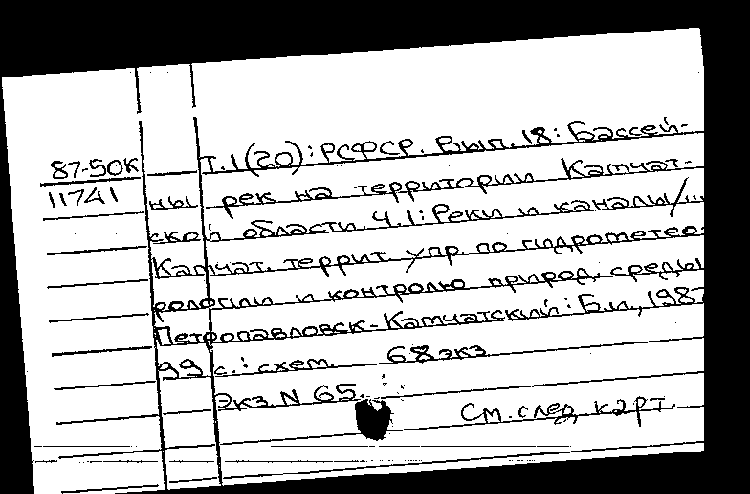 87-50К
11741
Т.1(20): РСФСР. Вып. 18: Бассей-
ны рек на территории Камчат-
ской области. Ч.1: Реки и каналы/...
Камчат. террит. упр. по гидрометео-
рологии и контролю природ. среды
Петропавловск-Камчатский: Б.и., 1987
99 с.: схем. 68 экз
Экз. N 65.
См. след. карт.